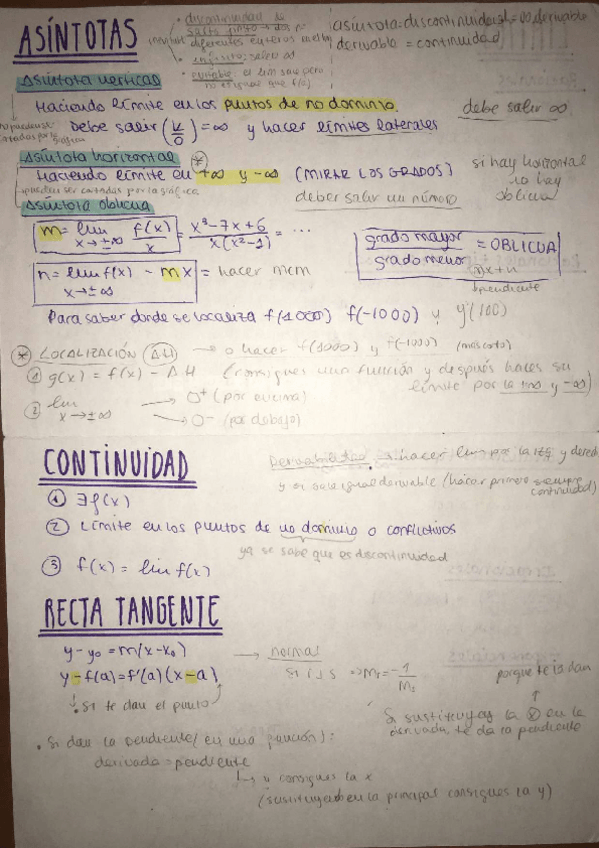 ASÍNTOTAS
discontinuidad de
salto finito → dos nº
diferentes
infinito: salen ∞
evitable: el lim sale pero
no es igual que f(a)
asíntota = discontinuidad = no derivable
derivable = continuidad
Asíntota vertical
Haciendo límite en los puntos de no dominio.
debe salir ∞
Debe salir (k/0) = ∞ y hacer límites laterales
Asíntota horizontal *
Haciendo límite en +∞ y -∞ (MIRAR LOS GRADOS)
si hay horizontal
no hay
oblicua
pueden ser cortadas por la gráfica
deber salir un número
Asíntota oblicua
m = lim x→±∞ f(x)/x = x³-7x+6 / x(x²-1) = ...
grado mayor / grado menor = OBLICUA
n = lim f(x) - mx = hacer mcm
x→±∞
pendiente
Para saber donde se localiza f(1000) f(-1000) y y(100)
* LOCALIZACIÓN (AH) → o hacer f(1000) y f(-1000) (más corto)
① g(x) = f(x) - AH (consigues una función y después haces su
límite por la +∞ y -∞)
② lim x→±∞ → 0⁺ (por encima)
→ 0⁻ (por debajo)
CONTINUIDAD
Derivabilidad: hacer lim por la izq y derech
y si sale igual derivable (hacer primero siempre
continuidad)
① ∃f(x)
② Límite en los puntos de no dominio o conflictivos
ya se sabe que es discontinuidad
③ f(x) = lim f(x)
RECTA TANGENTE
y-y₀ = m(x-x₀) → normal
y-f(a) = f'(a)(x-a)
Si r⊥s ⇒ m = -1/m
porque te la dan
Si te dan el punto
Si sustituyes la x en la
derivada, te da la pendiente
• Si dan la pendiente (en una función):
derivada = pendiente
↳ y consigues la x
(sustituyendo en la principal consigues la y)